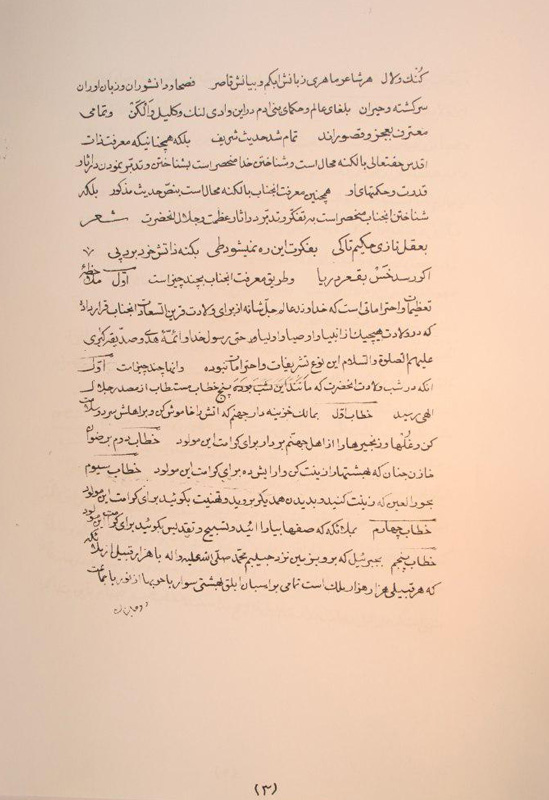 گنگ و لال هر شاعر ماهری زبانش ابکم و بیانش قاصر فصحا و دانشوران و زبان اوران
سرگشته و حیران بلغای عالم و حکمای بنی ادم در این وادی لنگ و کلیل و الکن و تمامی
معترف بعجز و قصور اند تمام شد حدیث شریف بلکه همچنانیکه معرفت ذات
اقدس حقتعالی بالکنه محال است و شناختن خدا منحصر است بشناختن و تدبّر نمودن در اثار و
قدرت و حکمتهای او همچنین معرفت انجناب بالکنه محال است بنصّ حدیث مذکور بلکه
شناختن انجناب منحصر است به تفکّر و تدبّر در اثار عظمت و جلال انحضرت شعر
بعقل نازی حکیم تا کی بفکرت این ره نمیشود طی بکنه ذاتش خرد برد پی
اگر رسد خس بقعر دریا و طریق معرفت انجناب بچند چیز است اوّل ملاحظهٔ
تعظیمات و احتراماتی است که خداوند عالم جلّ شانه از برای ولادت قرین السعادت انجناب قرار داد
که در ولادت هیچیک از انبیا و اوصیا و اولیا و حتی رسول خدا و ائمّهٔ هدی و صدیقه کبری
علیهم الصلوة و السلام این نوع تشریفات و احترامات نبوده و انها چند چیز است اوّل
انکه در شب ولادت انحضرت که مانند این شب نبوده پنج خطاب مستطاب از مصدر جلال
الهی رسید خطاب اوّل بمالک خزینه دار جهنم که اتش را خاموش کن و بر اهلش سرد و سلامت
کن و غلّها و زنجیرها را از اهل جهنم بردار برای کرامت این مولود خطاب دوم برضوان
خازن جنان که بهشتها را زینت کن و ارایش ده برای کرامت این مولود خطاب سیوم
بحور العین که زینت کنید و بدیدن همدیگر بروید و تهنیت بگوئید برای کرامت این مولود
خطاب چهارم بملائکه که صفها بیارائید و تسبیح و تقدیس بگوئید برای کرامت این مولود
خطاب پنجم بجبرئیل که برو بزمین نزد حبیبم محمّد صلی الله علیه و اله با هزار قبیل از ملائکه
که هر قبیلی هزار هزار ملک است تمامی بر اسبان ابلق بهشتی سوار با حربها از نور با جماعت
(۳)